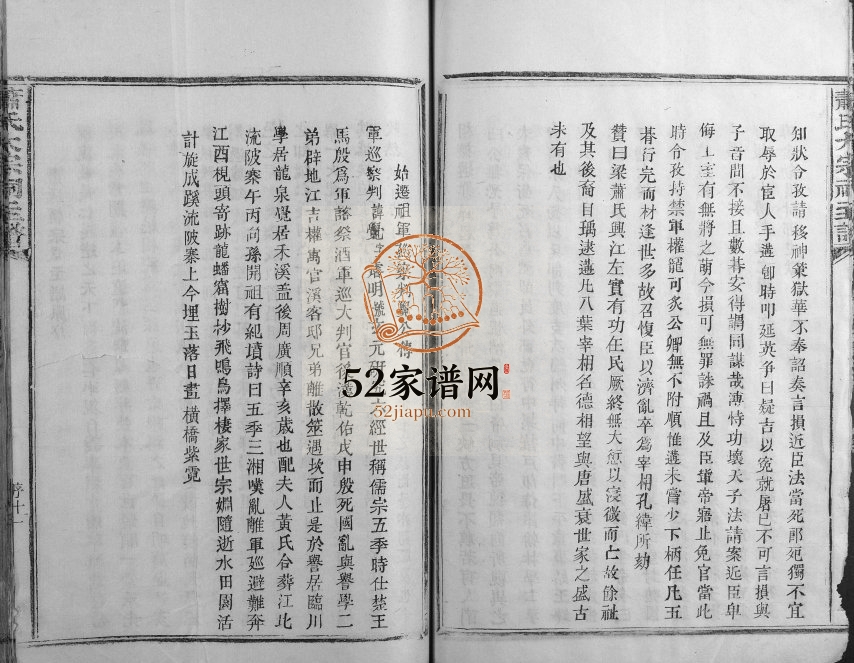 知狀令孜請移神策獄華不奉詔奏言損近臣法當死卽死獨不宜
取辱於宦人手遘卽時叩延英爭曰疑吉以冤就屠已不可言損與
子音問不接且數朞安得謂同謀哉溥恃功壞天子法請案近臣卑
侮上室有無將之萌今損可無罪誅禍且及臣輩帝寤止免官當此
時令孜持禁軍權寵可炙公卿無不附順惟遘未嘗少下柄任凡五
朞行完而材逢世多故召復臣以濟亂卒為宰相孔緯所劾
贊曰梁蕭氏興江左實有功在民厥終無大惡以寖微而亡故餘祉
及其後裔自瑀逮遘凡八葉宰相名德相望與唐盛衰世家之盛古
未有也
蕭氏大宗祠主譜
始遷祖軍巡祭判覺公傳
軍巡祭判諱覺字 明號 元 經世稱儒宗五季時仕楚王
馬殷爲軍諮祭酒軍巡大判官後漢乾佑戊申殷死國亂與譽學二
弟辟地江吉權寓官溪客邸兄弟離散筮遇坎而止是於譽居臨川
學居龍泉覺居禾溪盖後周廣順辛亥歲也配夫人黃氏合葬江北
流陂寨午丙向孫開祖有紀墳詩曰五季三湘嘆亂離軍廵避難奔
江西梘頭寄跡龍蟠窟樹抄飛鳴鳥擇棲家世宗嫺隨逝水田園活
計旋成蹊流陂寨上今埋玉落日晝橫橋紫霓
序十一
蕭氏大宗祠主譜
52家谱网
52jiapu.com